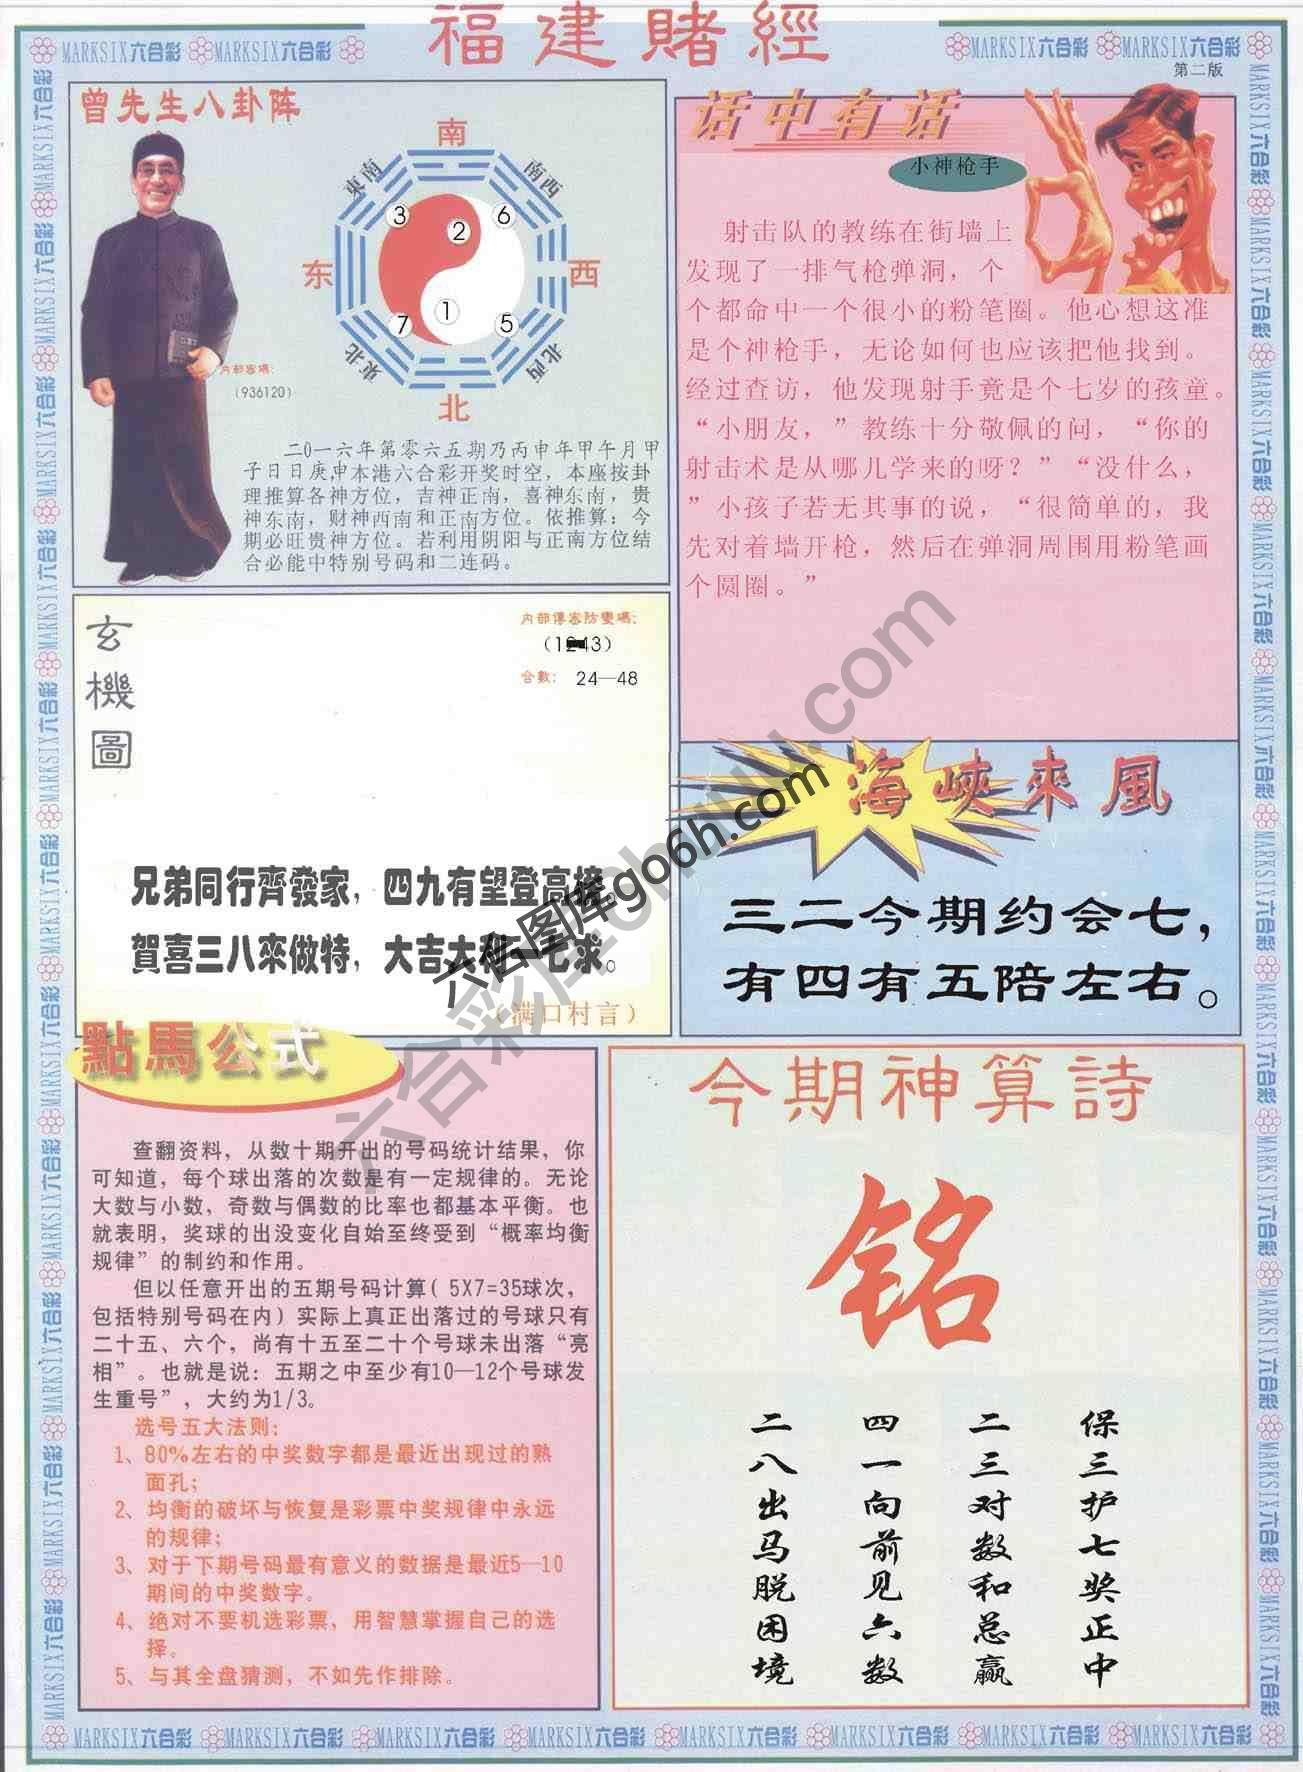 福建賭經
MARKSIX六合彩 MARKSIX六合彩 MARKSIX六合彩 MARKSIX六合彩
第二版
曾先生八卦阵
南
東南
南西
3
2
6
东
西
7
1
5
東北
北西
北
内部密碼:
(936120)
二0一六年第零六五期乃丙申年甲午月甲
子日日庚申本港六合彩开奖时空，本座按卦
理推算各神方位，吉神正南，喜神东南，贵
神东南，财神西南和正南方位。依推算：今
期必旺贵神方位。若利用阴阳与正南方位结
合必能中特别号码和二连码。
话中有话
小神枪手
射击队的教练在街墙上
发现了一排气枪弹洞，个
个都命中一个很小的粉笔圈。他心想这准
是个神枪手，无论如何也应该把他找到。
经过查访，他发现射手竟是个七岁的孩童。
“小朋友，”教练十分敬佩的问，“你的
射击术是从哪儿学来的呀？”“没什么，
”小孩子若无其事的说，“很简单的，我
先对着墙开枪，然后在弹洞周围用粉笔画
个圆圈。”
玄機圖
内部傳密防變碼:
合數: 24—48
兄弟同行齊發家，四九有望登高樓。
賀喜三八來做特，大吉大利
七求。
(满口村言)
海峽來風
三二今期约会七，
有四有五陪左右。
點馬公式
查翻资料，从数十期开出的号码统计结果，你
可知道，每个球出落的次数是有一定规律的。无论
大数与小数，奇数与偶数的比率也都基本平衡。也
就表明，奖球的出没变化自始至终受到“概率均衡
规律”的制约和作用。
但以任意开出的五期号码计算( 5X7=35球次，
包括特别号码在内) 实际上真正出落过的号球只有
二十五、六个，尚有十五至二十个号球未出落“亮
相”。也就是说：五期之中至少有10—12个号球发
生重号”，大约为1/3。
选号五大法则：
1、80%左右的中奖数字都是最近出现过的熟
面孔；
2、均衡的破坏与恢复是彩票中奖规律中永远
的规律；
3、对于下期号码最有意义的数据是最近5—10
期间的中奖数字。
4、绝对不要机选彩票，用智慧掌握自己的选
择。
5、与其全盘猜测，不如先作排除。
今期神算詩
铭
保三护七奖正中
二三对数和总赢
四一向前见六数
二八出马脱困境
六合图库go6h.com
MARKSIX六合彩 MARKSIX六合彩 MARKSIX六合彩 MARKSIX六合彩 MARKSIX六合彩 MARKSIX六合彩 MARKSIX六合彩 MARKSIX六合彩